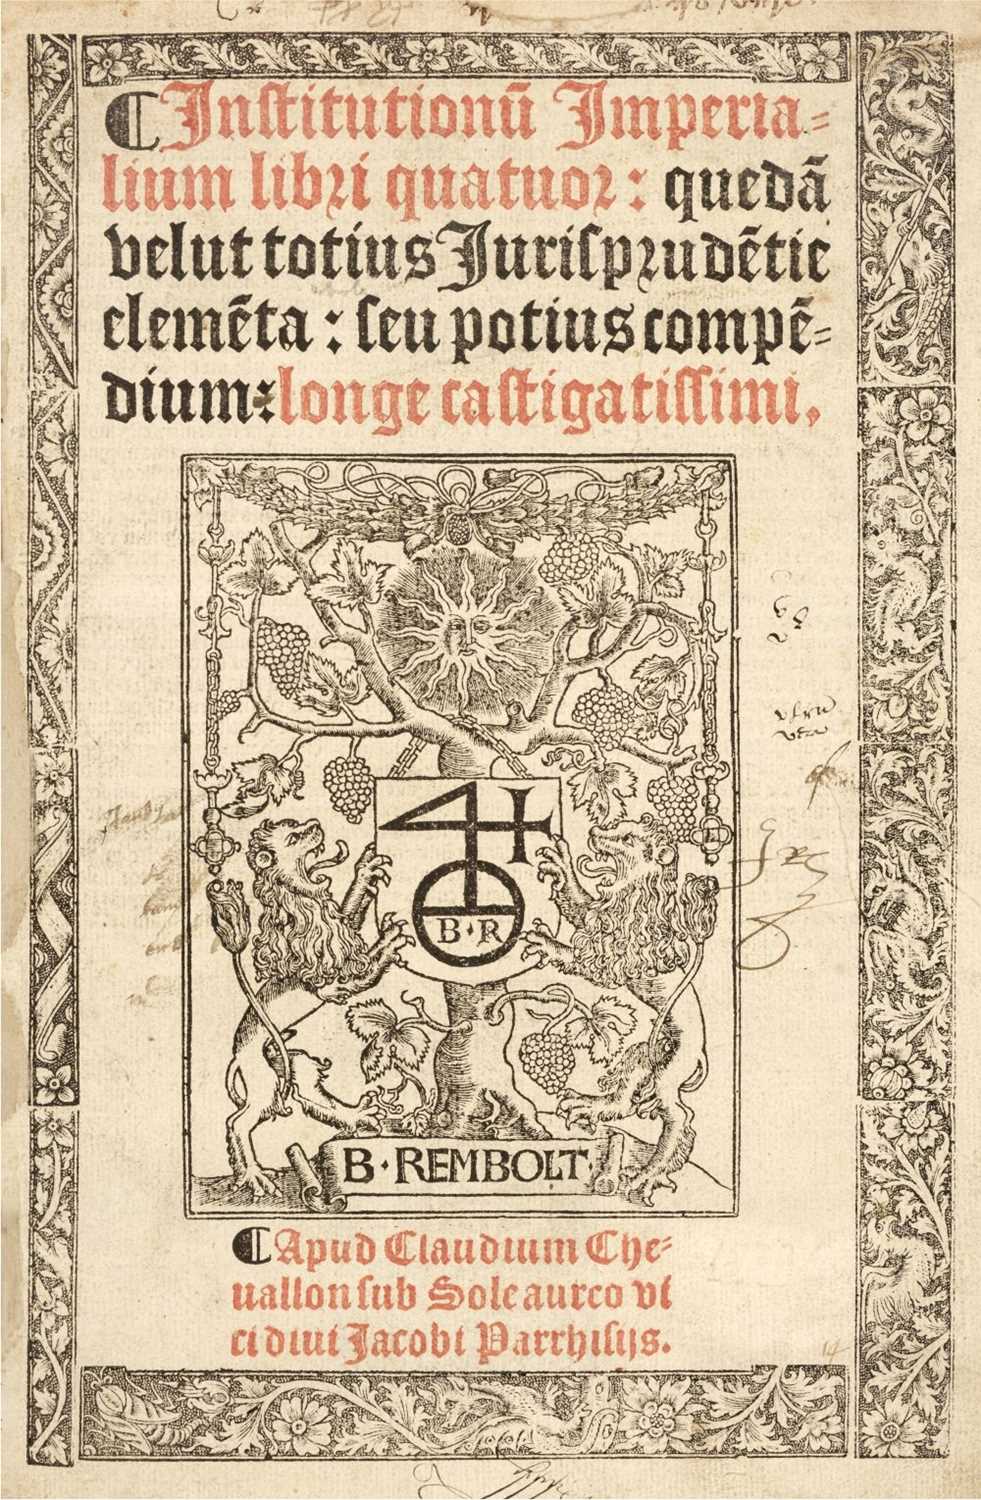 ¶Inſtitutionũ Imperia-
lium libꝛi quatuoꝛ: quedã
velut totius Juriſpꝛudẽtie
elemẽta: ſeu potius compẽ-
dium: longe caſtigatiſſimi.
B·R
B·REMBOLT
¶Apud Claudium Che-
uallon ſub Sole aureo vi
ci diui Jacobi Parrhiſijs.